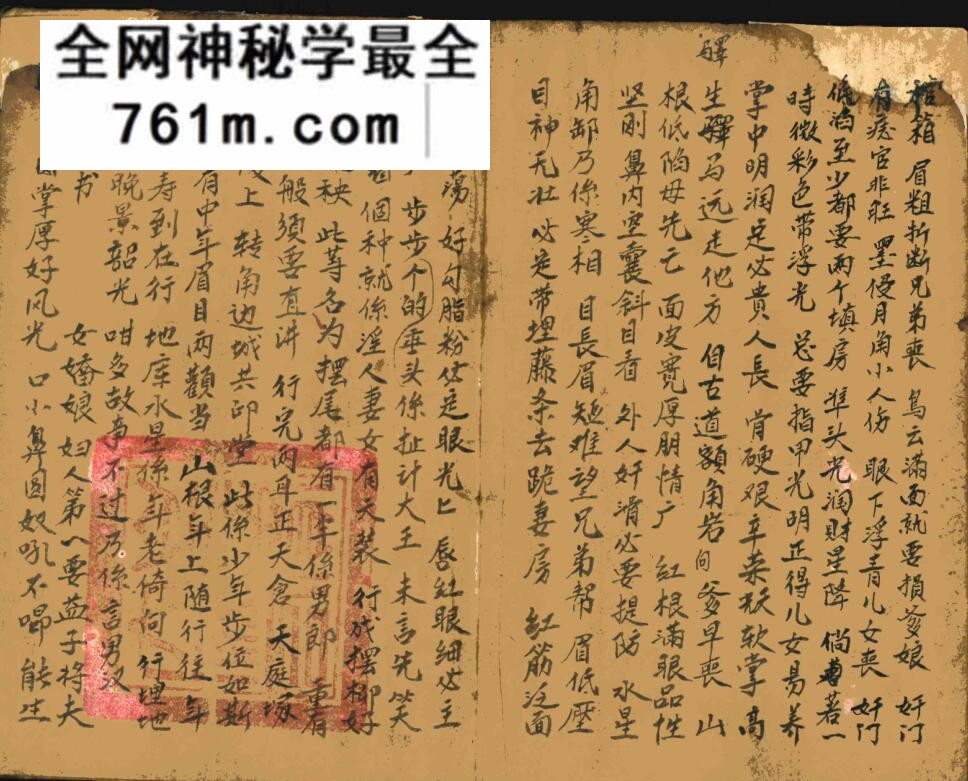 全网神秘学最全
761m.com
驛
粧箱 眉粗折断兄弟喪 烏云滿面就要損爹娘 奸门
有痣官非旺 墨侵月角小人伤 眼下浮青儿女喪 奸门
低陷至少都要两个填房 準头光润財星降 倘着一
時微彩色带浮光 总要指甲光明正得儿女易养
掌中明润足必貴人長 骨硬艰辛柔软掌高
生驛马远走他方 自古道額角岩向爹早喪 山
根低陷母先亡 面皮寬厚朋情广 紅根滿眼品性
坚刚鼻内空囊斜目看 外人奸滑必要提防 水星
角郁乃係寒相 目長眉短难望兄弟帮 眉低壓
目神无壮必定带埋藤条去跪妻房 紅筋泛面
荡 好勾脂粉必定眼光匕 唇紅眼细必主
步步个的垂头係扯计大王 未言先笑
個种就係淫人妻女 有天装 行成摆柳好
秧 此等名为摆尾都有一半係男郎 重有
般须要直讲 行完两耳正天倉 天庭
上 转角边城共印堂 此係少年步位如斯
有中年眉目两顴当 山根年上随行往 年
寿到在行 地库水星係年老倚向 行埋地
晚景韶光 咁多故事不过乃係言男汉
书 女嬌娘 妇人第一要益子将夫
掌厚好风光 口小鼻圆奴吼不唱 能生